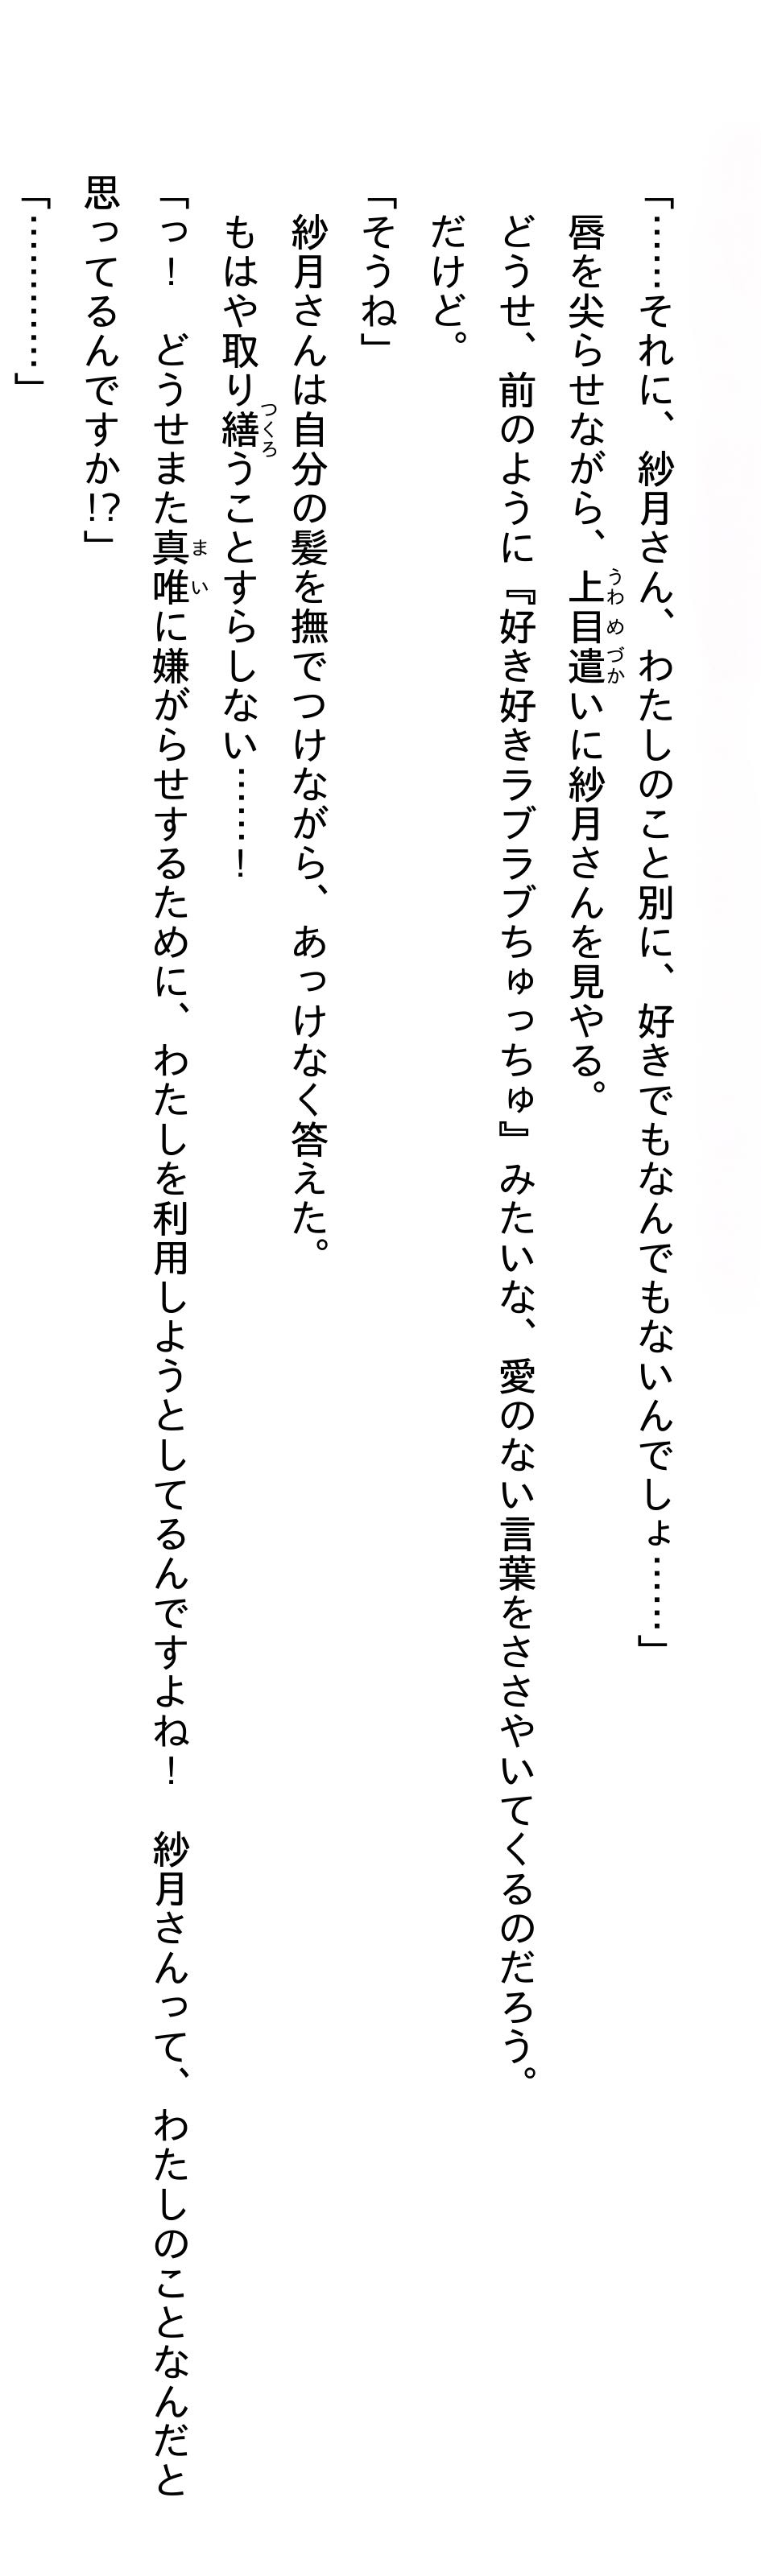 「……それに、紗月さん、わたしのこと別に、好きでもなんでもないんでしょ……」
唇を尖らせながら、上目遣いに紗月さんを見やる。
どうせ、前のように『好き好きラブラブちゅっちゅ』みたいな、愛のない言葉をささやいてくるのだろう。
だけど。
「そうね」
紗月さんは自分の髪を撫でつけながら、あっけなく答えた。
もはや取り繕うことすらしない……！
「っ！　どうせまた真唯に嫌がらせするために、わたしを利用しようとしてるんですよね！　紗月さんって、わたしのことなんだと
思ってるんですか!?」
「…………」